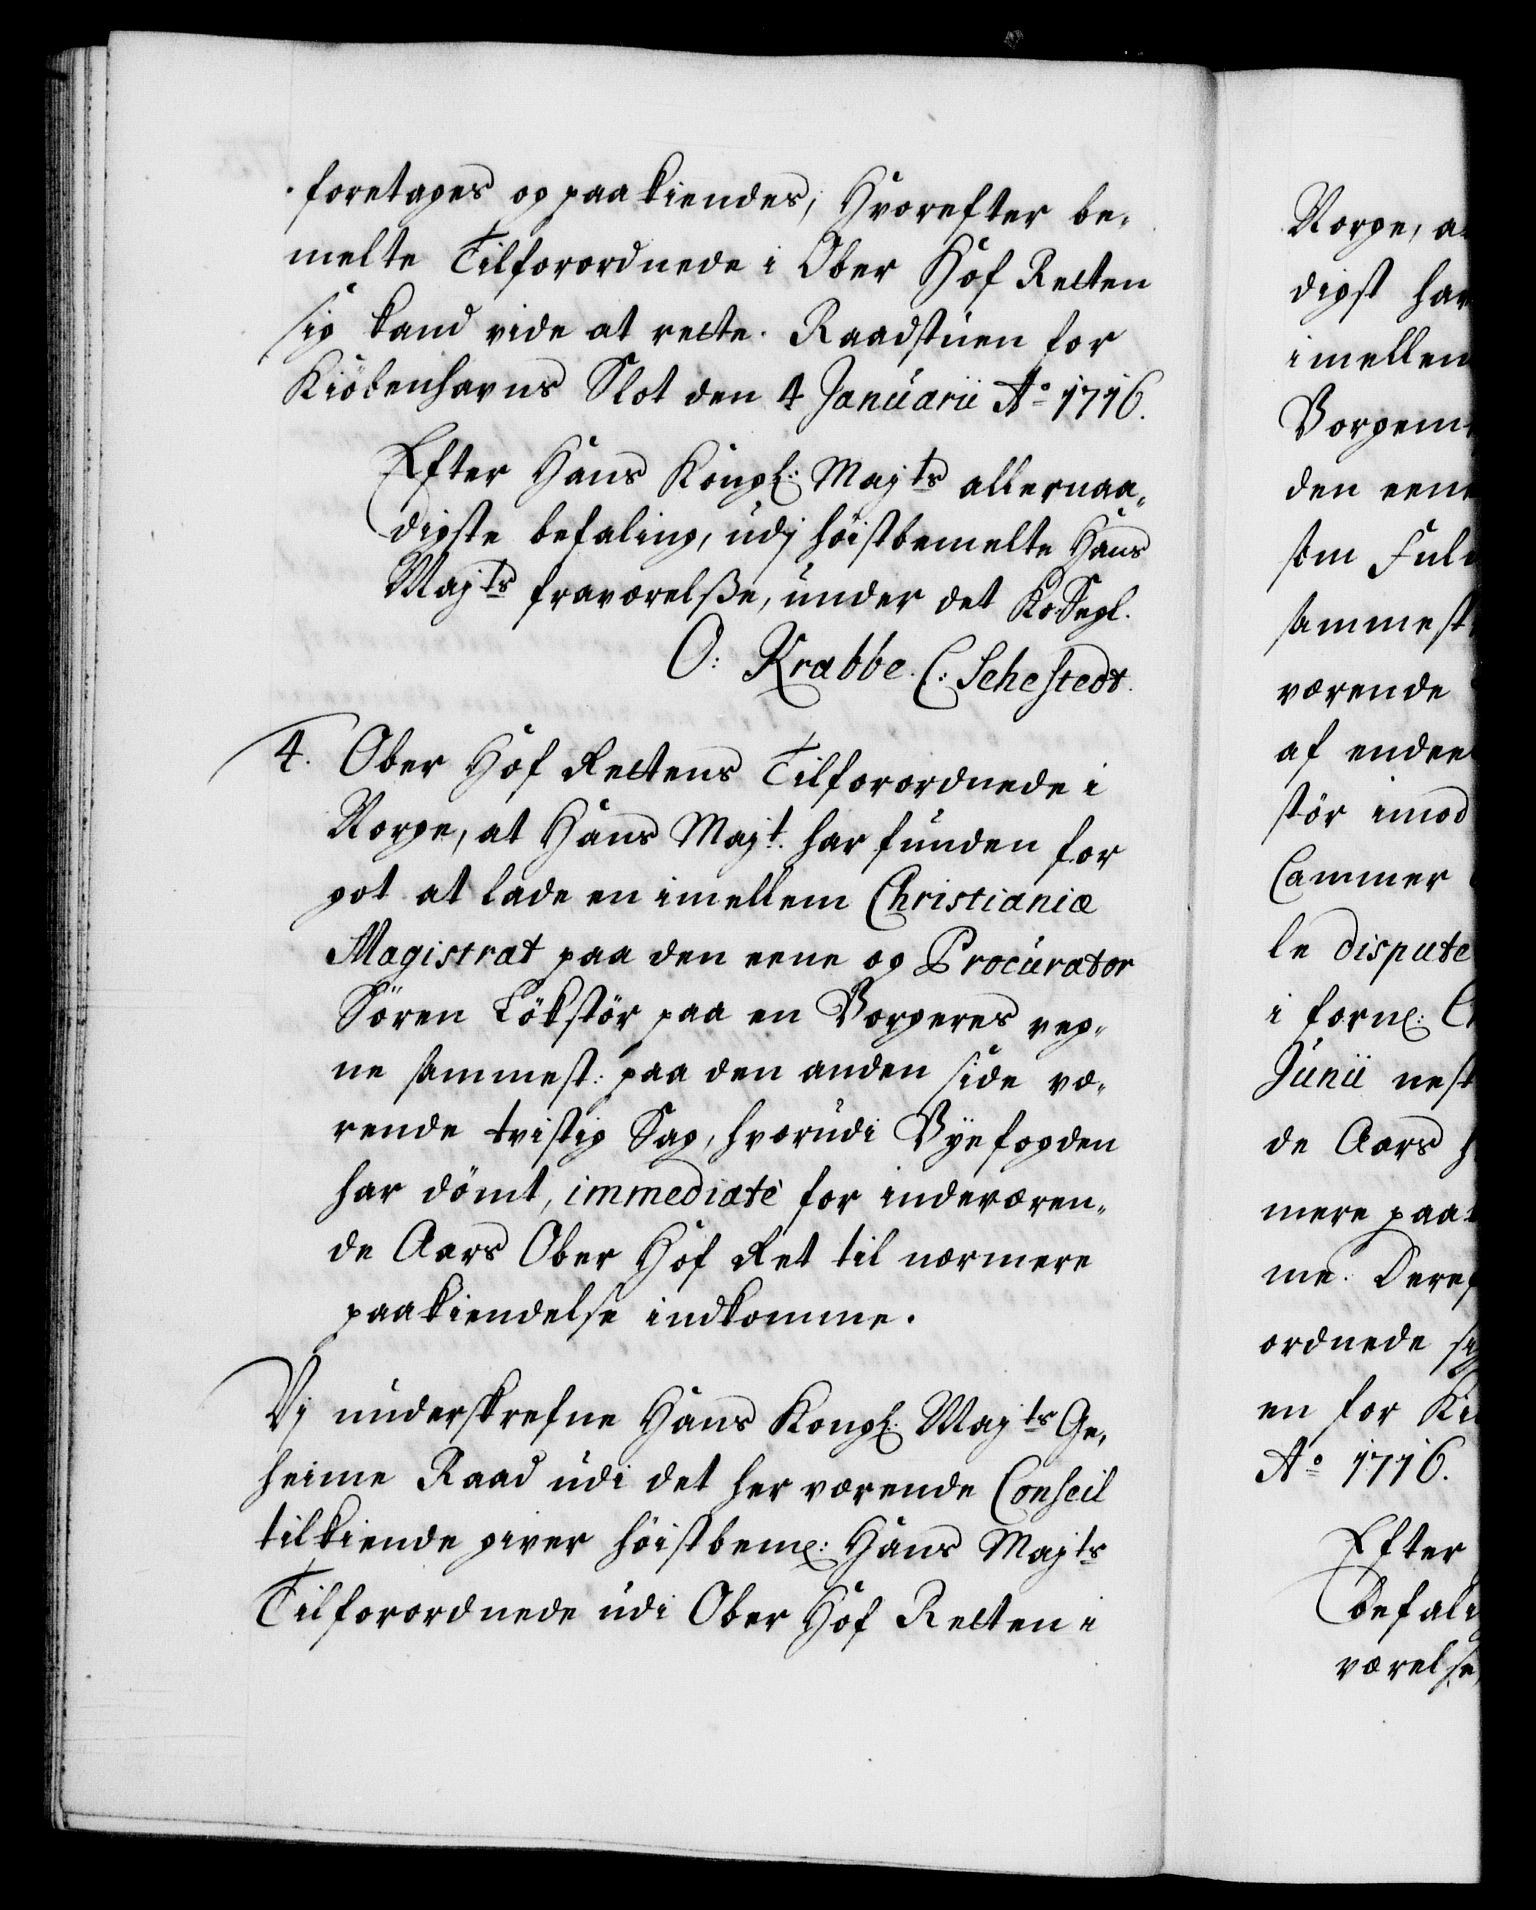 foretages og paakiendes; Hvorefter be-
melte Tilforordnede i Ober Hof Retten
sig kand vide at rette. Raadstuen for
Kiöbenhavns Slot den 4 Januarii Ao 1716.
Efter Hans Kongl: Majts allernaa-
digste befaling, udj höistbemelte Hans
Majts fraværelsse, under det
O: Krabbe. C: Sehestedt.
4. Ober Hof Rettens Tilforordnede i
Norge, at Hans Majt. har funden for
got at lade en imellem Christianiæ
Magistrat paa den eene og Procurator
Sören Lökstör paa en Borgeres veg-
ne sammest: paa den anden side væ-
rende tvistig Sag, hvorudi Byefogden
har dömt, immediatè for indeværen-
de Aars Ober Hof Ret til nærmere
paakiendelse indkomme.
Vj underskrefne Hans Kongl: Majts Ge-
heime Raad udi det her værende Conseil
tilkiende giver höistbeme: Hans Majts
Tilforordnede udi Ober Hof Retten i
Norge, a
digst har
imellem
Borgem
den eene
som Ful
sammest
værende
af endee
stör imod
Cammer
le dispute
i forne: C
Junii nest
de Aars h
mere paak
me. Deref
ordnede sig
en for Ki
Ao 1716.
Efter
befali
værelse